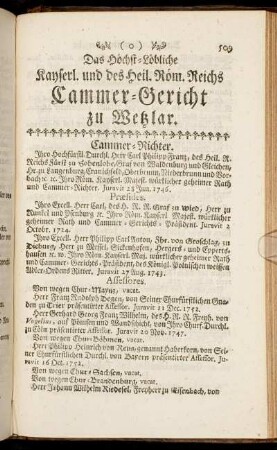 ( o )
509
Das Höchst-Löbliche
Kayserl. und des Heil. Röm. Reichs
Cammer-Gericht
zu Wetzlar.
Cammer-Richter.
Ihro Hochfürstl. Durchl. Herr Carl Philipp Franz, des Heil. R.
Reichs Fürst zu Hohenlohe, Graf von Waldenburg und Gleichen,
Hr. zu Langenburg, Cranichfeld, Oberbrunn, Niederbrunn und
bach ꝛc. ꝛc. Ihro Röm. Kayserl. Majest. würcklicher geheimer Rath
und Cammer-Richter. Juravit 25 Jun. 1746.
Præsides.
Ihro Excell. Herr Carl, des H. R. R. Graf zu Wied, Herr zu
Runkel und Ysenburg ꝛc. Ihro Röm. Kayserl. Majest. würcklicher
geheimer Rath und Cammer-Gerichts-Präsident. Juravit 2
Octobr. 1724.
Ihro Excell. Herr Philipp Carl Anton, Fhr. von Groschlag, zu
Dieburg, Herr zu Messel, Sickenhofen, Hergers- und Eppertz-
hausen ꝛc. ꝛc. Ihro Röm. Kayserl. Maj. würcklicher geheimer Rath
und Cammer-Gerichts-Präsident, des Königl. Polnischen weissen
Adler-Ordens Ritter. Juravit 27 Aug. 1743.
Assessores.
Von wegen Chur-Maynz, vacat.
Herr Franz Rudolph Bogen, von Seiner Churfürstlichen Gna-
den zu Trier präsentirter Assessor. Juravit 11 Dec. 1752.
Herr Gerhard Georg Franz Wilhelm, des H. R. R. Freyh. von
und Pömeln und Wandschicht, von Ihro Churf. Durchl.
zu Cöln präsentirter Assessor. Juravit 20 Nov. 1747.
Von wegen Chur-Böhmen, vacat.
Herr Philipp Heinrich von Reus, genannt Haberkorn, von Sei-
ner Churfürstlichen Durchl. von Bayern präsentirter Assessor. Ju-
ravit 16 Oct. 1752.
Von wegen Chur-Sachsen, vacat.
Von wegen Chur-Brandenburg, vacat.
Herr Johann Wilhelm Riedesel, Freyherr zu Eisenbach, von